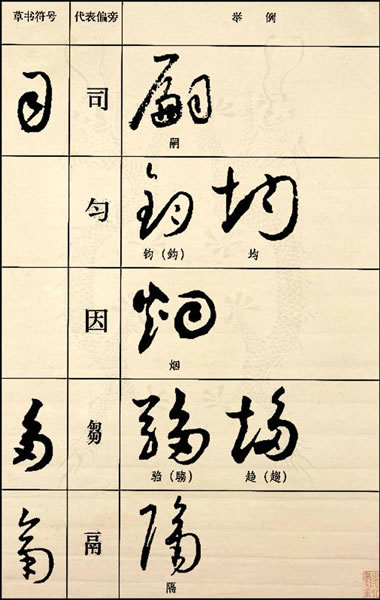 草书符号 代表偏旁 举例
司
嗣
匀
钧（鈞） 均
因
烟
芻
驺（騶） 趋（趨）
鬲
隔